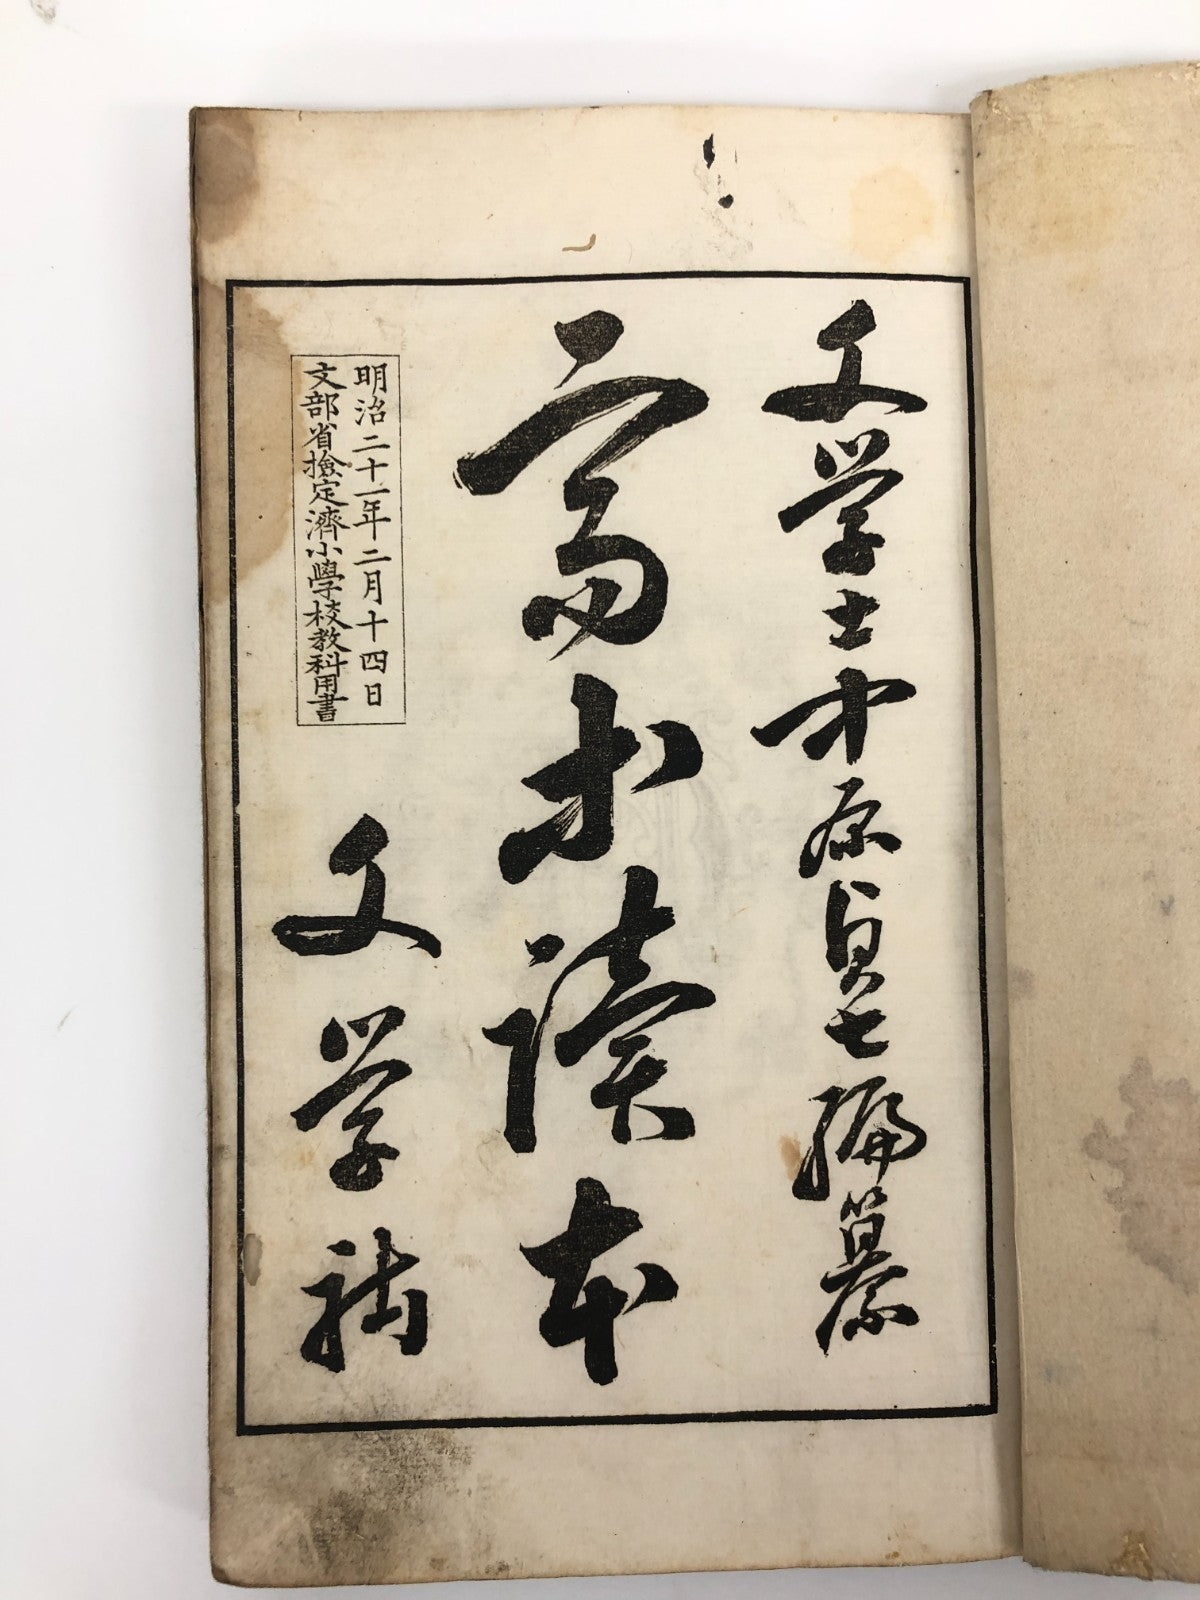 文学士中原貞七編纂
高等讀本
明治二十一年二月十四日
文部省撿定濟小學校教科用書
文学社